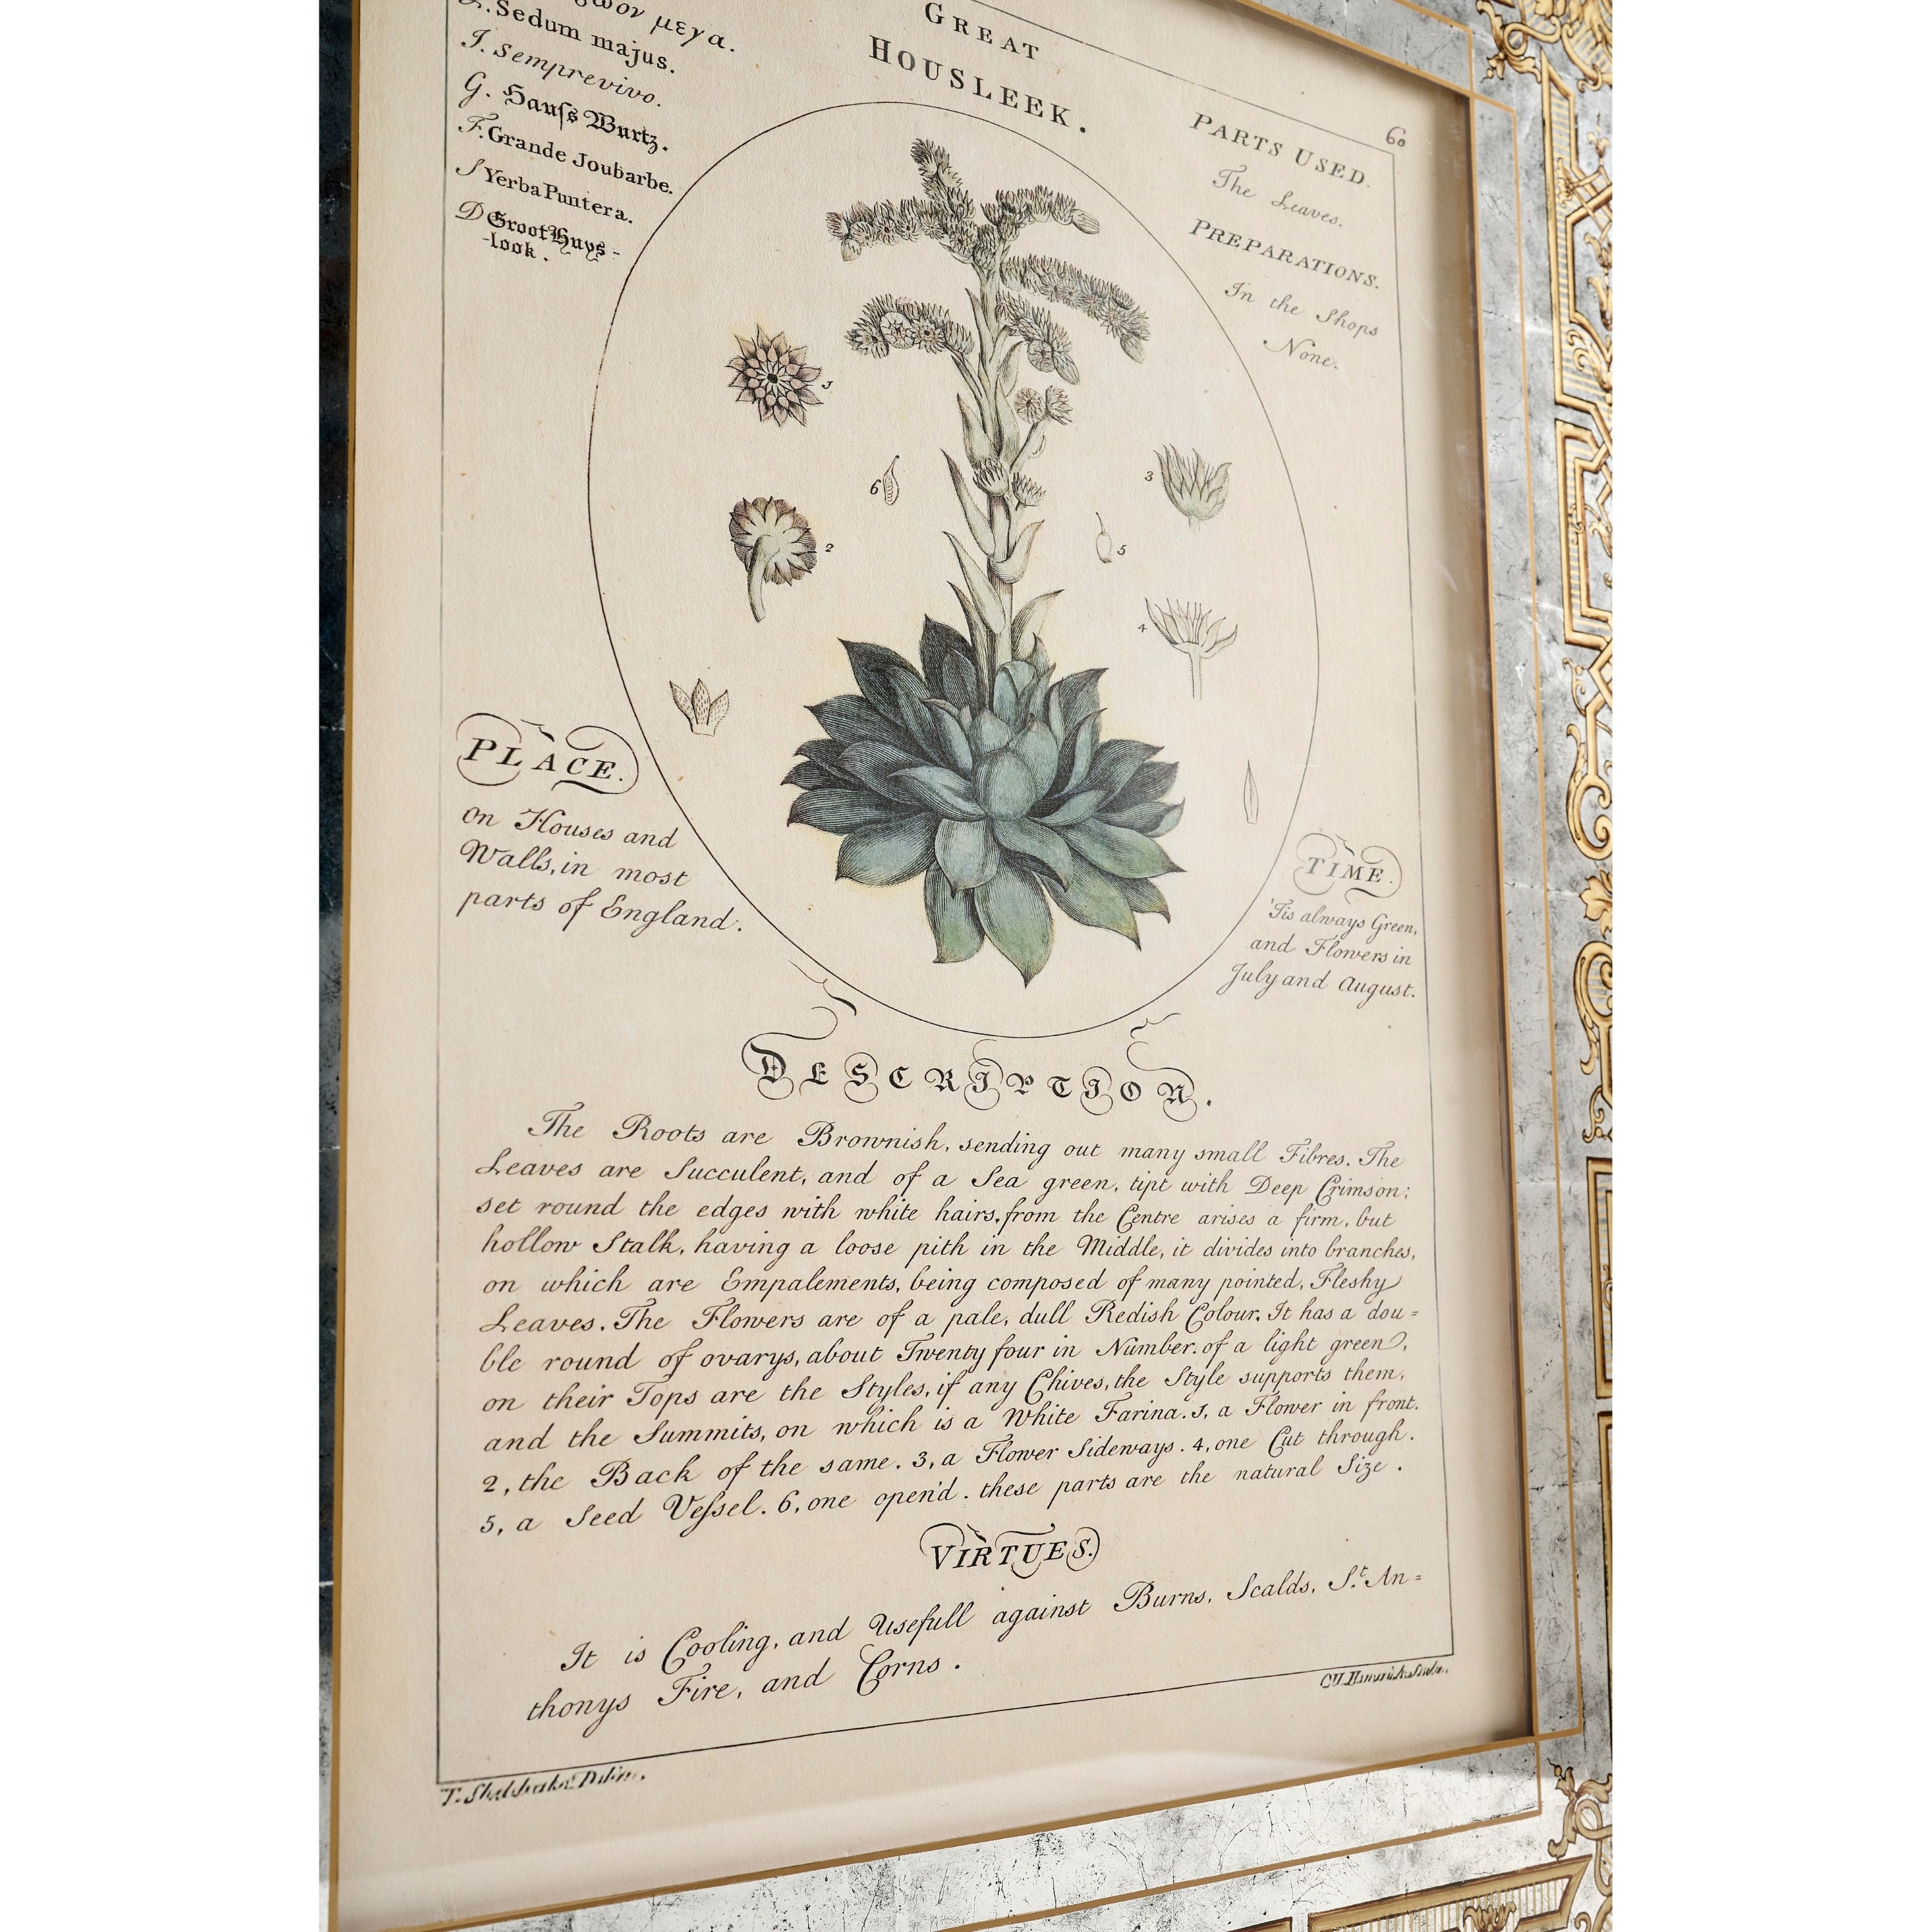 μεγα.
Sedum majus.
I. Semprevivo.
G. Hauſs Wurtz.
F. Grande Joubarbe.
S Yerba Puntera.
D Groot Huys-
-look.
GREAT
HOUSLEEK.
60
PARTS USED.
The Leaves.
PREPARATIONS.
In the Shops
None.
1
2
3
4
5
6
PLACE.
on Houses and
Walls, in most
parts of England.
TIME.
'Tis always Green,
and Flowers in
July and August.
DESCRIPTION.
The Roots are Brownish, sending out many small Fibres. The
Leaves are Succulent, and of a Sea green, tipt with Deep Crimson;
set round the edges with white hairs, from the Centre arises a firm, but
hollow Stalk, having a loose pith in the Middle, it divides into branches,
on which are Empalements, being composed of many pointed, Fleshy
Leaves. The Flowers are of a pale, dull Redish Colour. It has a dou=
ble round of ovarys, about Twenty four in Number. of a light green,
on their Tops are the Styles, if any Chives, the Style supports them,
and the Summits, on which is a White Farina. 1, a Flower in front.
2, the Back of the same. 3, a Flower Sideways. 4, one Cut through.
5, a Seed Veſsel. 6, one open'd. these parts are the natural Size.
VIRTUES.
It is Cooling, and Usefull against Burns, Scalds, St. An=
thonys Fire, and Corns.